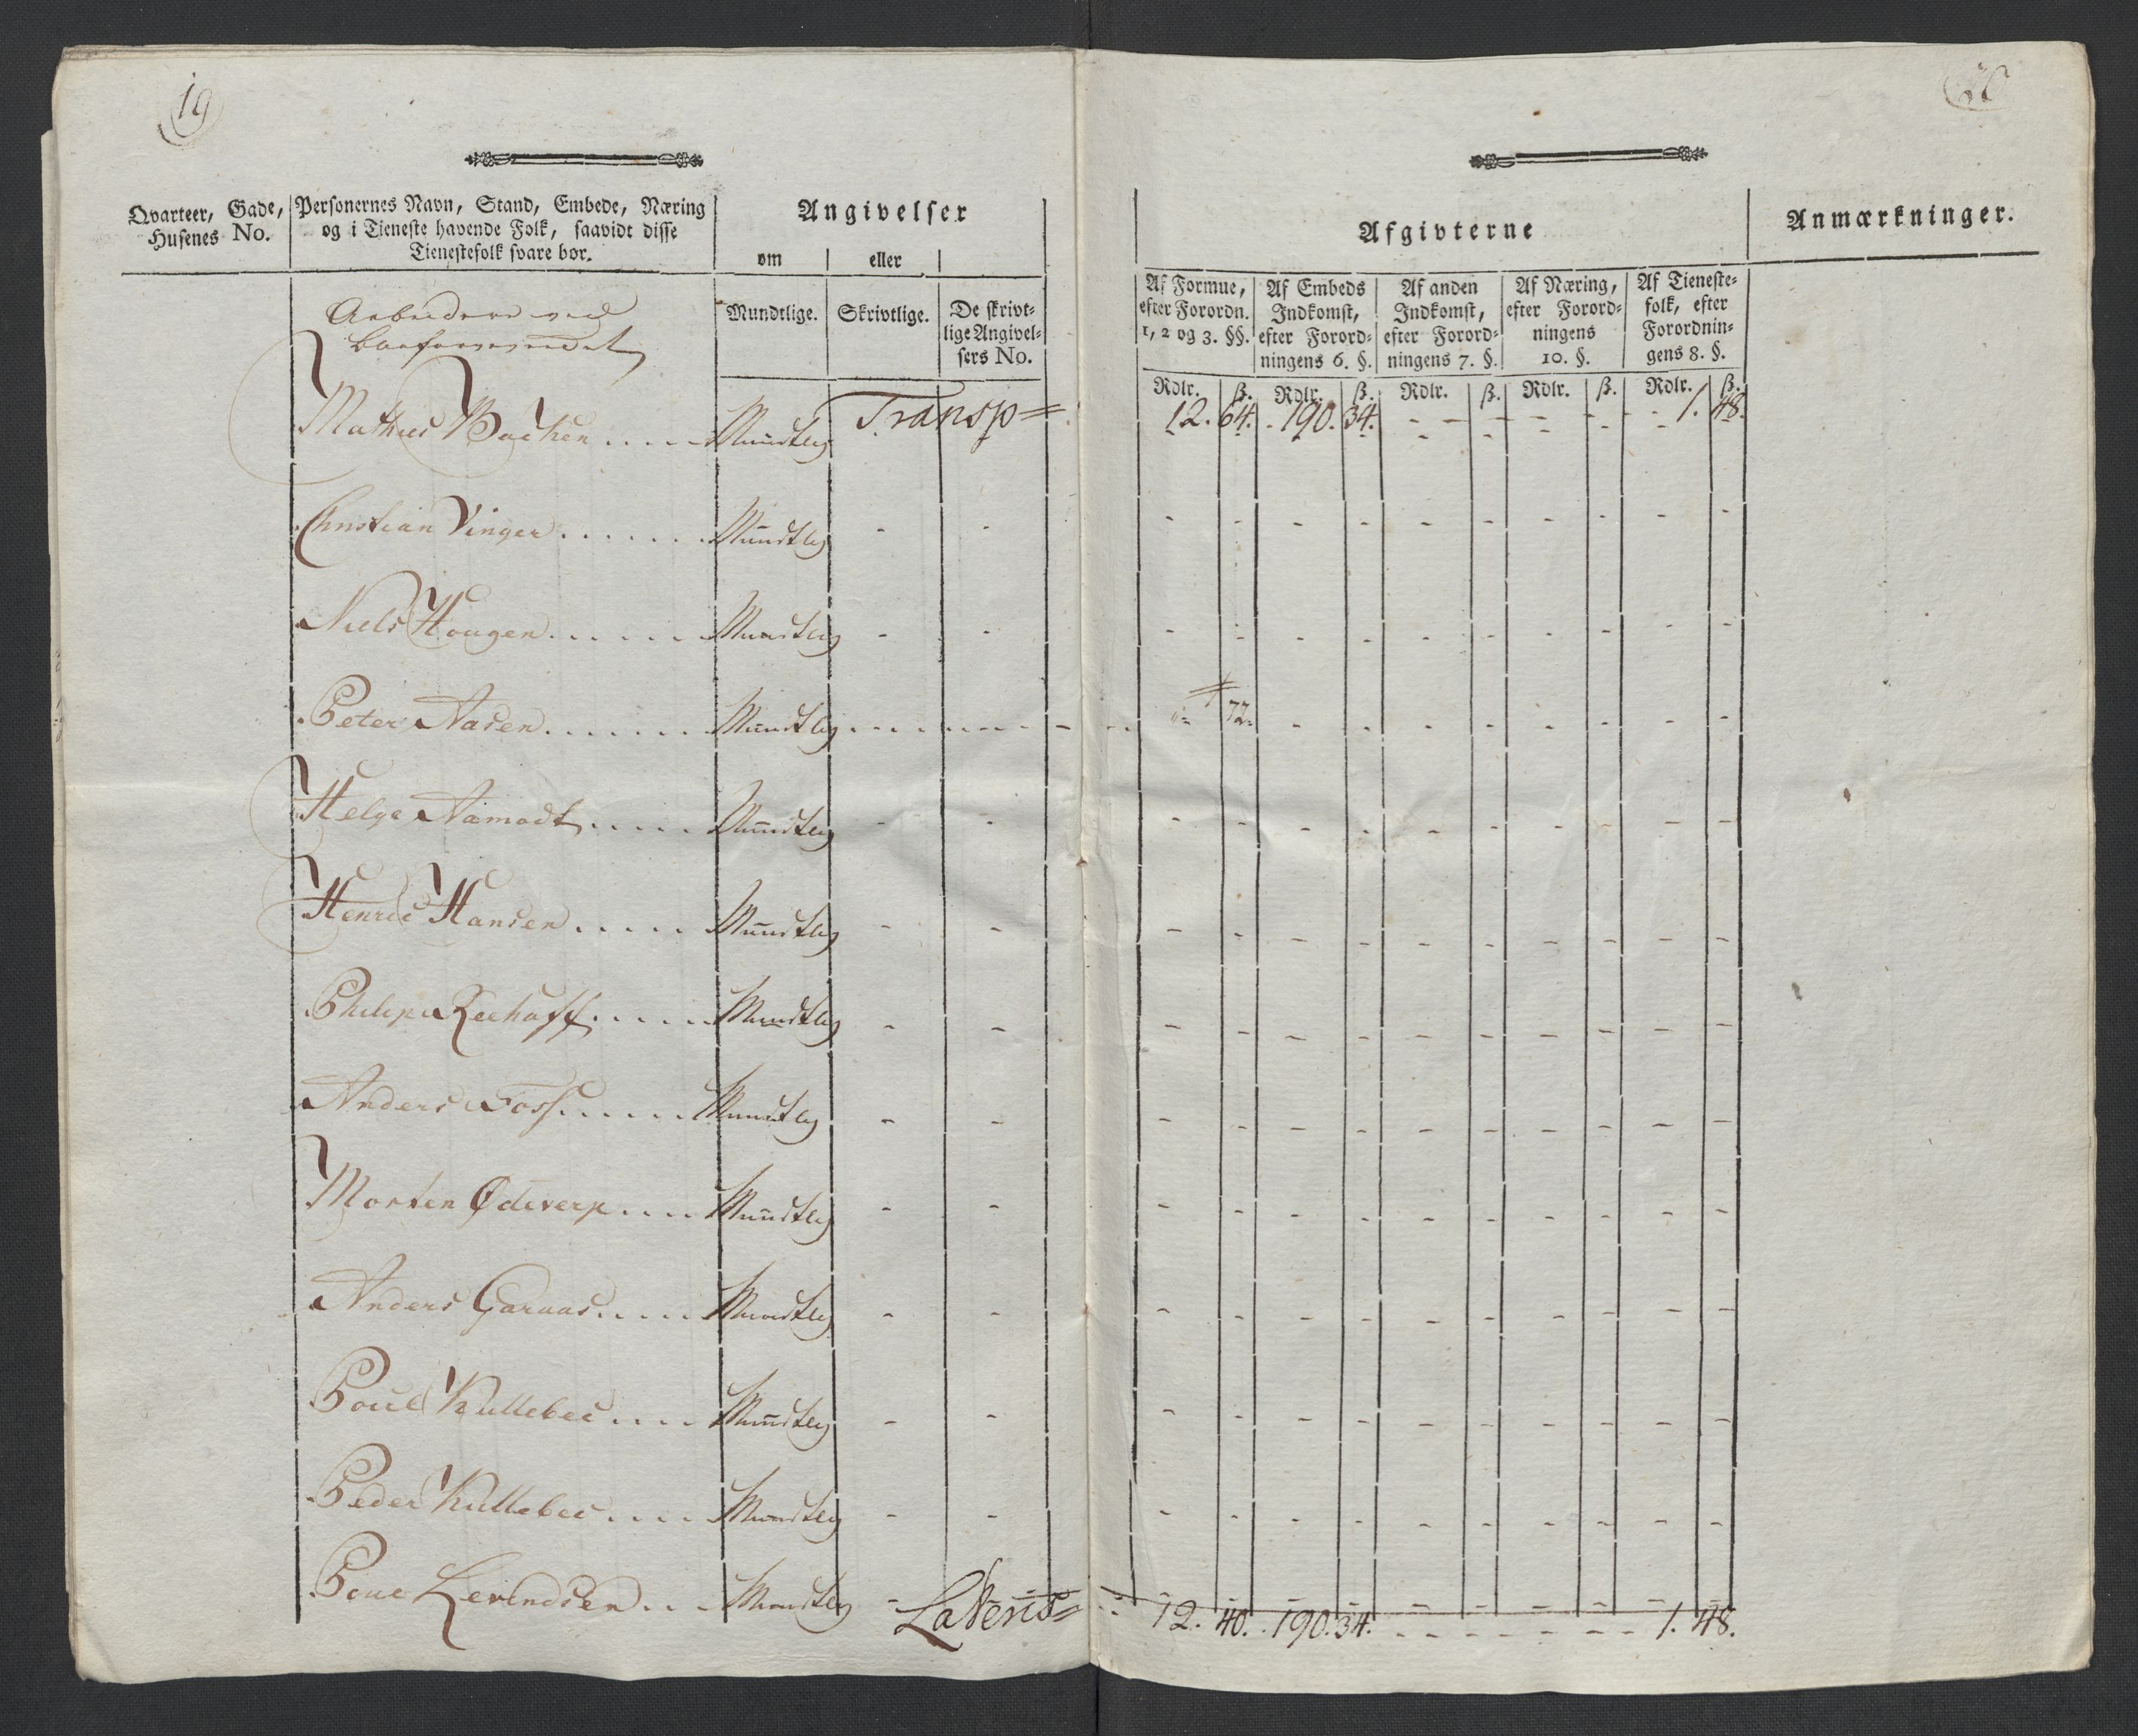 19
20
Qvarteer, Gade,
Husenes No.
Personernes Navn, Stand, Embede, Næring
og i Tieneste havende Folk, saavidt disse
Tienestefolk svare bør.
Angivelser
om eller
Mundtlige. Skrivtlige. De skrivt-
lige Angivel-
sers No.
Afgivterne
Anmærkninger.
Af Formue,
efter Forordn.
1, 2 og 3. §§.
Af Embeds
Indkomst,
efter Forord-
ningens 6. §.
Af anden
Indkomst,
efter Forord-
ningens 7. §.
Af Næring,
efter Forord-
ningens
10. §.
Af Tieneste-
folk, efter
Forordnin-
gens 8. §.
Rdlr. ß. Rdlr. ß. Rdlr. ß. Rdlr. ß. Rdlr. ß.
Arbeidere ved
Transp= 12. 64. 190. 34. - - - - 1. 48.
Mathies Bachen ..... Mundtlig
Christian Vinger ...... Mundtlig - - - - - - - - - - - -
Niels Hougen ...... Mundtlig - - - - - - - - - - - -
Peter Aasen ....... Mundtlig ........ 72 - - - - - - - -
Helge Aamodt ..... Mundtlig - - - - - - - - - - - -
Henric Hansen ..... Mundtlig - - - - - - - - - - - -
Philip Reehoff ..... Mundtlig - - - - - - - - - - - -
Anders Foss ..... Mundtlig - - - - - - - - - - - -
Morten Ødeverp .... Mundtlig - - - - - - - - - - - -
Anders Garaas .... Mundtlig - - - - - - - - - - - -
Poul Kullebec .... Mundtlig - - - - - - - - - - - -
Peder Kullebec .... Mundtlig - - - - - - - - - - - -
Poul Levendsen ... Mundtlig - - - - - - - - - - - -
Lateris= 12. 40. 190. 34. - - - - 1. 48.